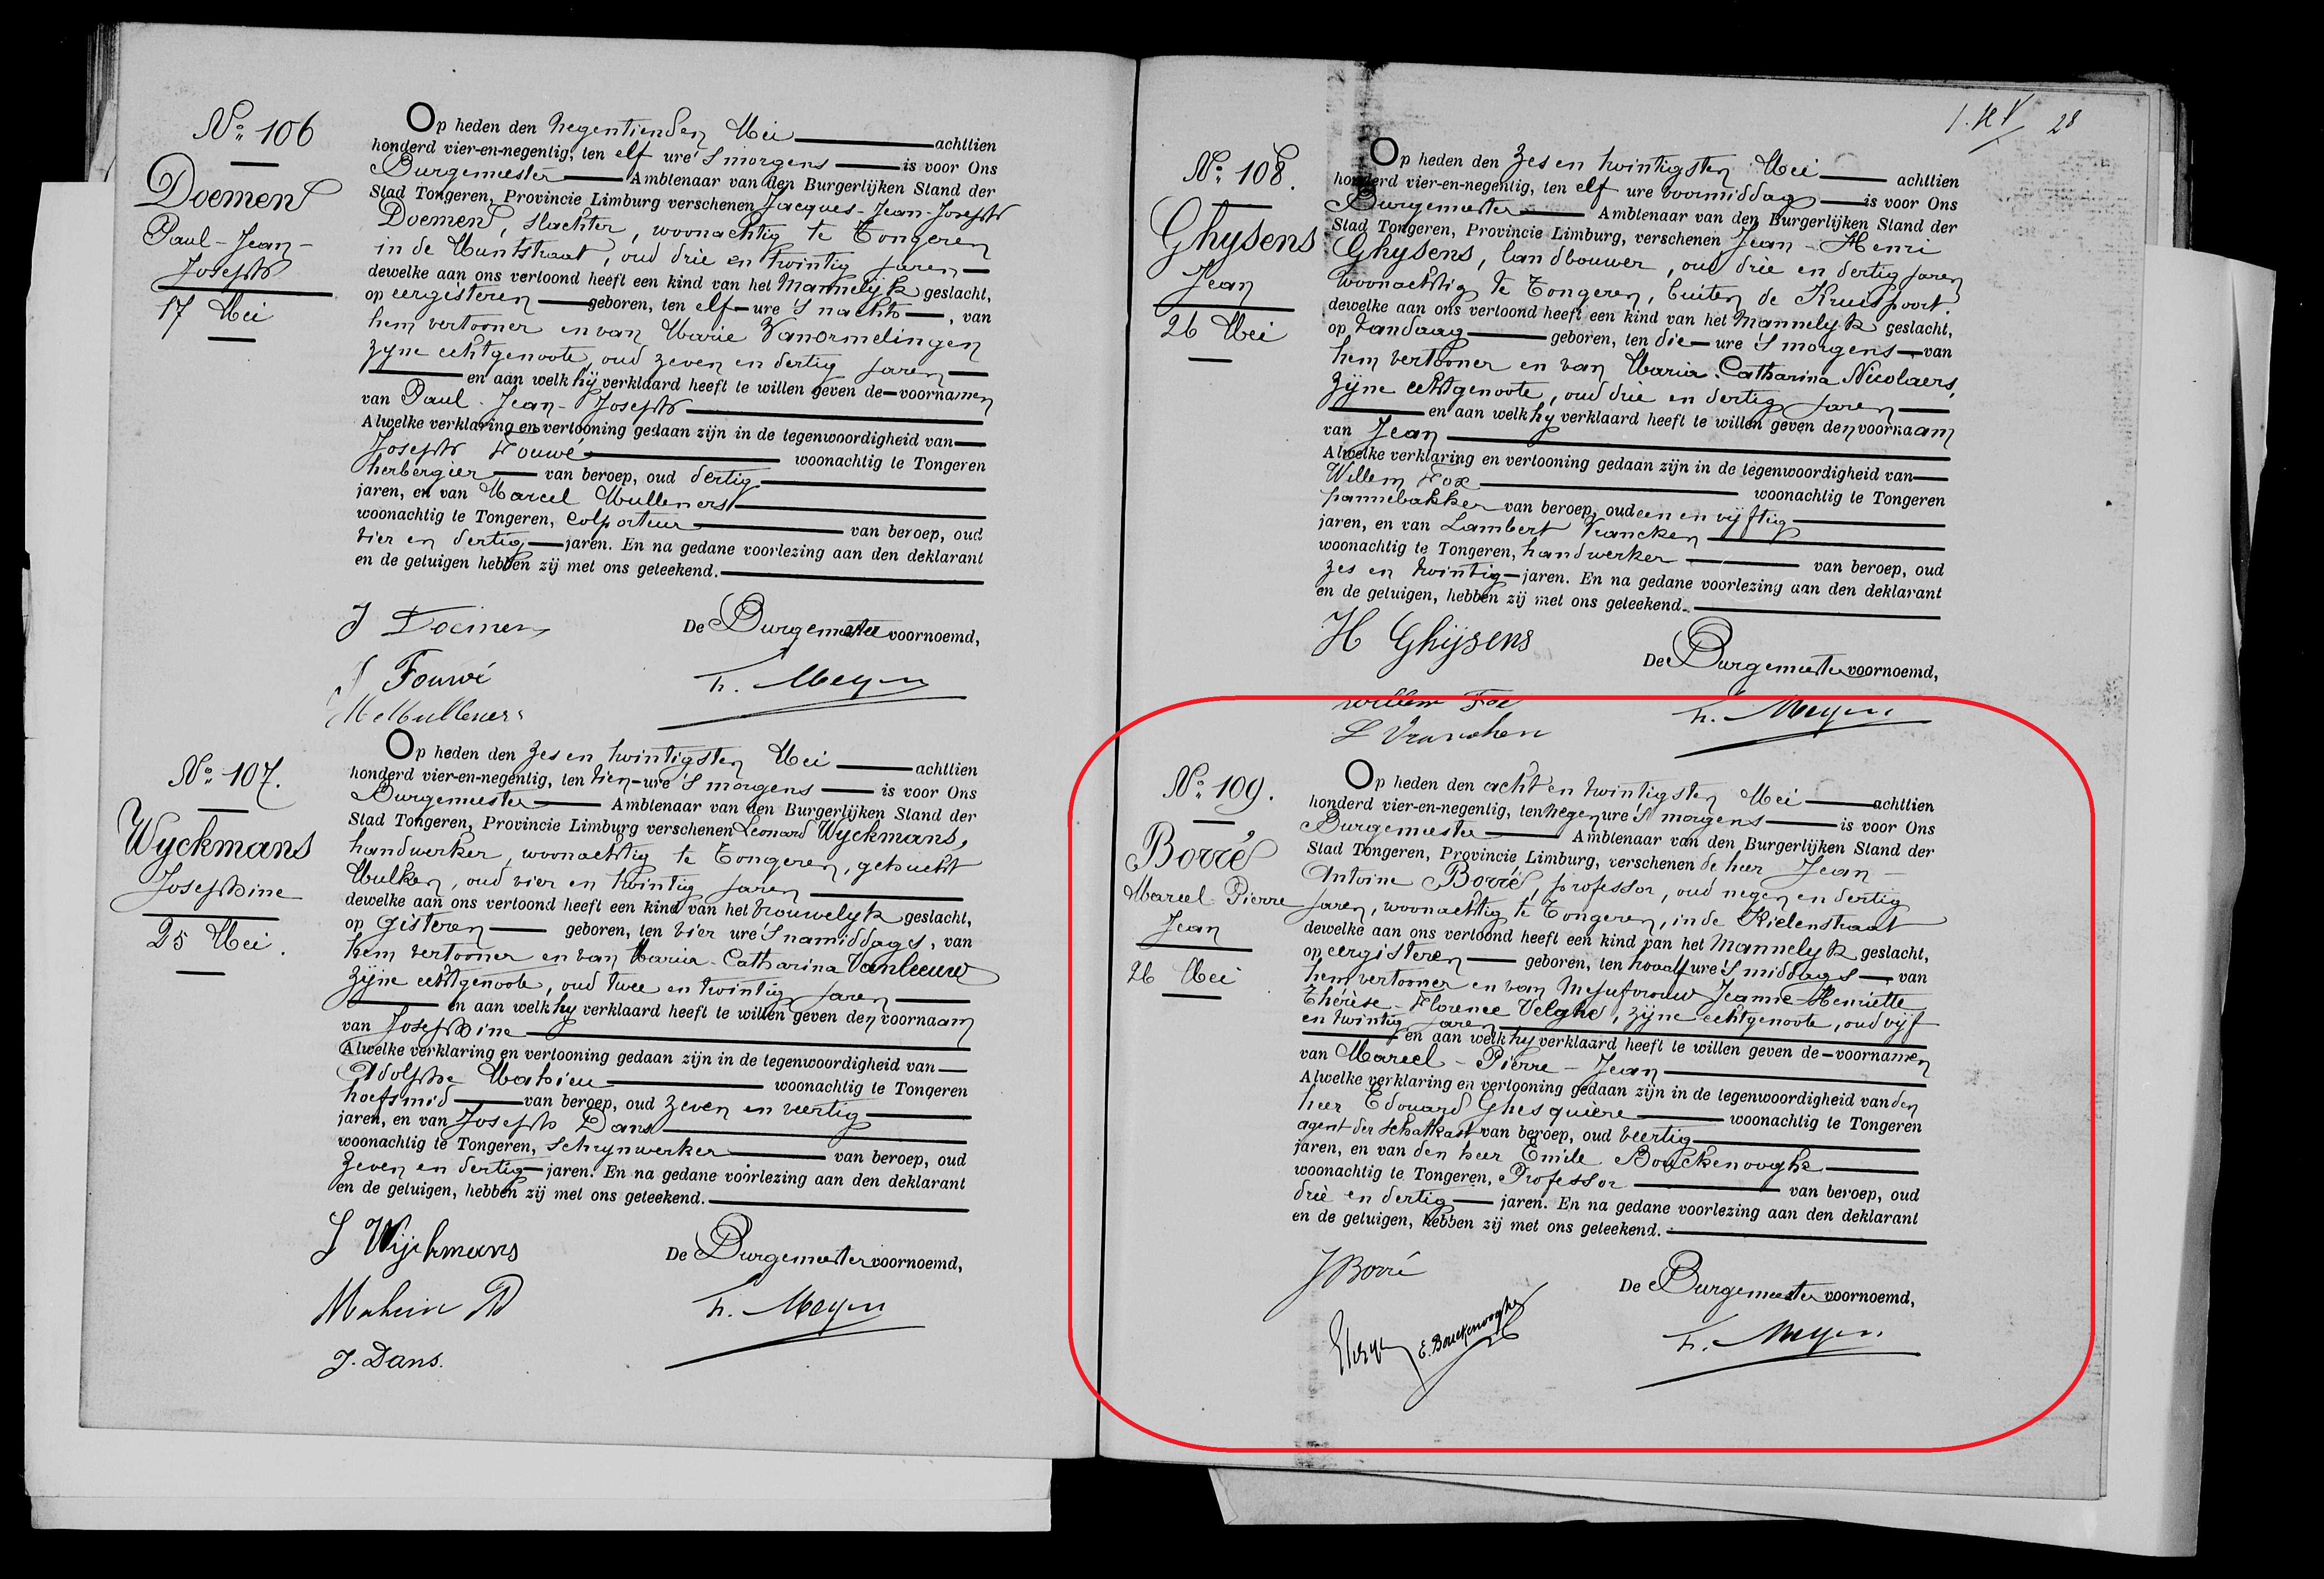 Nº 106
Doemen
Paul-Jean-
Joseph
17 Mei
Op heden den negentienden Mei achttien
honderd vier-en-negentig, ten elf ure 's morgens is voor Ons
Burgemeester Ambtenaar van den Burgerlijken Stand der
Stad Tongeren, Provincie Limburg verschenen Jacques-Jean-Joseph
Doemen, slachter, woonachtig te Tongeren
in de Muntstraat, oud drie en twintig jaren
dewelke aan ons vertoond heeft een kind van het Mannelyk geslacht,
op eergisteren geboren, ten elf ure 's nachts, van
hem vertooner en van Marie Vanormelingen
zyne echtgenoote, oud zeven en dertig jaren
en aan welk hij verklaard heeft te willen geven de voornamen
van Paul-Jean-Joseph
Alwelke verklaring en vertooning gedaan zijn in de tegenwoordigheid van
Joseph Fouwé woonachtig te Tongeren
herbergier van beroep, oud dertig
jaren, en van Marcel Mulleners
woonachtig te Tongeren, colporteur van beroep, oud
vier en dertig jaren. En na gedane voorlezing aan den deklarant
en de getuigen hebben zij met ons geteekend.
J Doemen
De Burgemeester voornoemd,
J Fouwé
h. Meyers
M Mulleners
Nº 107.
Wyckmans
Josephine
25 Mei.
Op heden den zes en twintigsten Mei achttien
honderd vier-en-negentig, ten tien ure 's morgens is voor Ons
Burgemeester Ambtenaar van den Burgerlijken Stand der
Stad Tongeren, Provincie Limburg verschenen Leonard Wyckmans,
handwerker, woonachtig te Tongeren, gehucht
Mulken, oud vier en twintig jaren
dewelke aan ons vertoond heeft een kind van het vrouwelyk geslacht,
op gisteren geboren, ten vier ure 's namiddags, van
hem vertooner en van Maria-Catharina Vanleeuw
zijne echtgenoote, oud twee en twintig jaren
en aan welk hy verklaard heeft te willen geven den voornaam
van Josephine
Alwelke verklaring en vertooning gedaan zijn in de tegenwoordigheid van
Adolphe Mahieu woonachtig te Tongeren
hoefsmid van beroep, oud zeven en veertig
jaren, en van Joseph Dans
woonachtig te Tongeren, schrynwerker van beroep, oud
zeven en dertig jaren. En na gedane voorlezing aan den deklarant
en de getuigen, hebben zij met ons geteekend.
L Wijckmans
De Burgemeester voornoemd,
h. Meyers
J. Dans.
28
Nº 108.
Ghysens
Jean
26 Mei
Op heden den zes en twintigsten Mei achttien
honderd vier-en-negentig, ten elf ure voormiddag is voor Ons
Burgemeester Ambtenaar van den Burgerlijken Stand der
Stad Tongeren, Provincie Limburg, verschenen Jean-Henri
Ghysens, landbouwer, oud drie en dertig jaren
woonachtig te Tongeren, buiten de Kruispoort.
dewelke aan ons vertoond heeft een kind van het Mannelyk geslacht,
op vandaag geboren, ten drie ure 's morgens van
hem vertooner en van Maria-Catharina Nicolaers,
zijne echtgenoote, oud drie en dertig jaren
en aan welk hy verklaard heeft te willen geven den voornaam
van Jean
Alwelke verklaring en vertooning gedaan zijn in de tegenwoordigheid van
Willem Fox woonachtig te Tongeren
pannebakker van beroep, oud een en vijftig
jaren, en van Lambert Vrancken
woonachtig te Tongeren, handwerker van beroep, oud
zes en twintig jaren. En na gedane voorlezing aan den deklarant
en de getuigen, hebben zij met ons geteekend.
H Ghijsens
De Burgemeester voornoemd,
Willem Fox
h. Meyers
L Vrancken
Nº 109.
Borré
Marcel-Pierre
Jean
26 Mei
Op heden den acht en twintigsten Mei achttien
honderd vier-en-negentig, ten negen ure 's morgens is voor Ons
Burgemeester Ambtenaar van den Burgerlijken Stand der
Stad Tongeren, Provincie Limburg, verschenen de heer Jean-
Antoine Borré, professor, oud negen en dertig
jaren, woonachtig te Tongeren, in de Kielenstraat
dewelke aan ons vertoond heeft een kind van het Mannelyk geslacht,
op eergisteren geboren, ten twaalf ure 's middags van
hem vertooner en van Mejufvrouw Jeanne-Henriette
Thérèse-Florence Velghe, zijne echtgenoote, oud vijf
en twintig jaren
en aan welk hy verklaard heeft te willen geven de voornamen
van Marcel-Pierre-Jean
Alwelke verklaring en vertooning gedaan zijn in de tegenwoordigheid van den
heer Edouard Ghesquière woonachtig te Tongeren
agent der schatkast van beroep, oud veertig
jaren, en van den heer Emile Bouckenooghe
woonachtig te Tongeren, Professor van beroep, oud
drie en dertig jaren. En na gedane voorlezing aan den deklarant
en de getuigen, hebben zij met ons geteekend.
J Borré
De Burgemeester voornoemd,
E. Bouckenooghe
h. Meyers